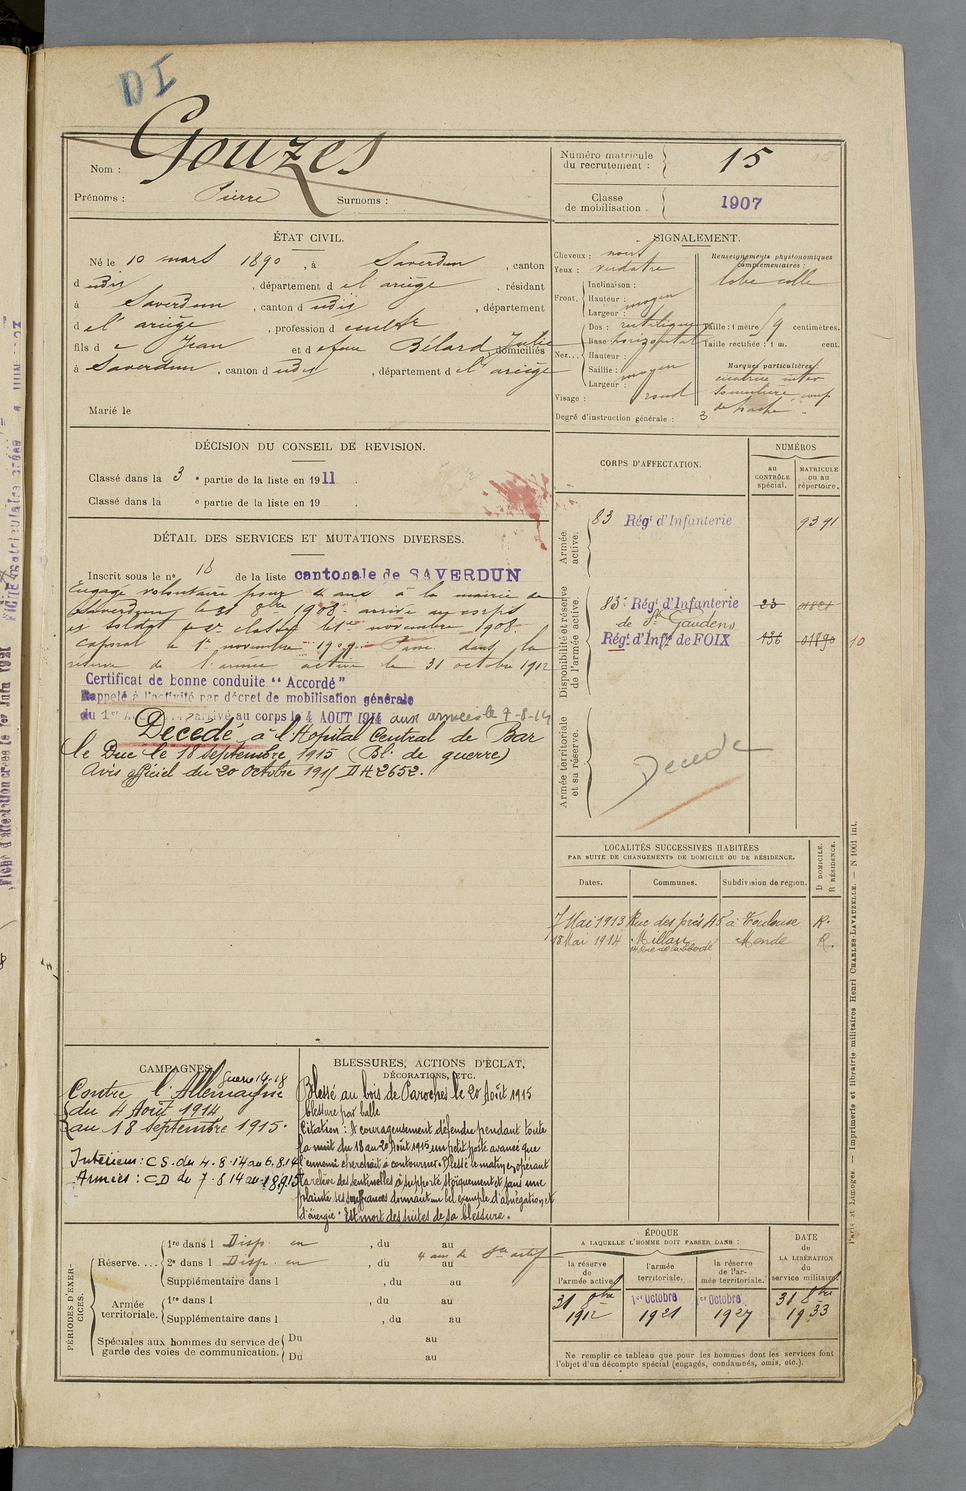 DI
Nom : Gouzes
Prénoms : Pierre Surnoms :
Numéro matricule
du recrutement : 15
Classe
de mobilisation . 1907
ÉTAT CIVIL.
Né le 10 mars 1890 , à Saverdun , canton
d udit , département d el ariège , résidant
à Saverdun , canton d udit , département
d el' ariège , profession d
fils d e Jean et d e feue Bélard Julie , domiciliés
à Saverdun , canton d udit , département d el' ariège
Marié le
SIGNALEMENT.
Cheveux : noirs
Yeux : verdâtre
Front. Inclinaison :
Hauteur : moyen
Largeur :
Nez... Dos : rectiligne
Base : horizontal
Hauteur :
Saillie : moyen
Largeur :
Visage : rond
Renseignements physionomiques
complémentaires :
lobe collé
Taille : 1 mètre 79 centimètres.
Taille rectifiée : 1 m. cent.
Marques particulières :
cicatrice inter
sourcilière coup
de hache
Degré d'instruction générale : 3
DÉCISION DU CONSEIL DE REVISION.
Classé dans la 3 e partie de la liste en 1911 .
Classé dans la e partie de la liste en 19 .
DÉTAIL DES SERVICES ET MUTATIONS DIVERSES.
Inscrit sous le n° 18 de la liste cantonale de SAVERDUN
Engagé volontaire pour 4 ans à la mairie de
Saverdun le 31 8bre 1908. arrivé au corps
et soldat de 2e classe le 1er novembre 1908.
Caporal le 1er novembre 1909. Passé dans la
réserve de l'armée active le 31 octobre 1912
Certificat de bonne conduite " Accordé "
Rappelé à l'activité par décret de mobilisation générale
du 1er arrivé au corps le 4 AOUT 1914 aux armées le 7-8-14
Décédé à l'Hopital Central de Bar
le Duc le 18 septembre 1915 (Bl. de guerre)
Avis officiel du 20 octobre 1915 D H 2652.
CORPS D'AFFECTATION.
NUMÉROS
au
CONTRÔLE
spécial.
MATRICULE
ou au
répertoire.
Armée
active.
83 Régt d'Infanterie 9391
Disponibilité et réserve
de l'armée active.
83e Régt d'Infanterie 23 01821
de St Gaudens
Régt d'Infie de FOIX 136 01890 10
Armée territoriale
et sa réserve.
Décédé
LOCALITÉS SUCCESSIVES HABITÉES
PAR SUITE DE CHANGEMENTS DE DOMICILE OU DE RÉSIDENCE.
Dates. Communes. Subdivision de région. D DOMICILE. R RÉSIDENCE.
7 Mai 1913 Rue des prés 45 à Toulouse R.
18 Mai 1914 Millau Mende R.
CAMPAGNES.
Guerre 14-18
Contre l'Allemagne
du 4 Août 1914
au 18 septembre 1915.
Intérieur : CS. du 4.8.14 au 6.8.14
Armées : CD du 7.8 14 au 18.9.15
BLESSURES, ACTIONS D'ÉCLAT,
DÉCORATIONS, ETC.
Blessé au bois de Paroches le 20 Août 1915
blessure par balle
Citation : A courageusement défendu pendant toute
la nuit du 18 au 20 Août 1915 un petit poste avancé que
l'ennemi cherchait à contourner. Blessé le matin en opérant
la relève des sentinelles a supporté stoïquement et sans une
plainte ses souffrances donnant un bel exemple d'abnégation et
d'énergie" Est mort des suites de sa blessure.
PÉRIODES D'EXER-
CICES.
Réserve.... 1re dans l Disp. en , du au
2e dans l Disp. en , du au
4 ans de Sce actif
Supplémentaire dans l , du au
Armée
territoriale. 1re dans l , du au
Supplémentaire dans l , du au
Spéciales aux hommes du service de
garde des voies de communication.
Du au
Du au
ÉPOQUE
A LAQUELLE L'HOMME DOIT PASSER DANS :
la réserve
de
l'armée active.
l'armée
territoriale.
la réserve
de l'ar-
mée territoriale.
DATE
de
LA LIBÉRATION
du
service militaire.
31 8bre
1912
1er Octobre
1921
1er Octobre
1927
31 8bre
1933
Ne remplir ce tableau que pour les hommes dont les services font
l'objet d'un décompte spécial (engagés, condamnés, omis, etc.).
Paris et Limoges. — Imprimerie et librairie militaires Henri CHARLES-LAVAUZELLE. — N 1001 int.